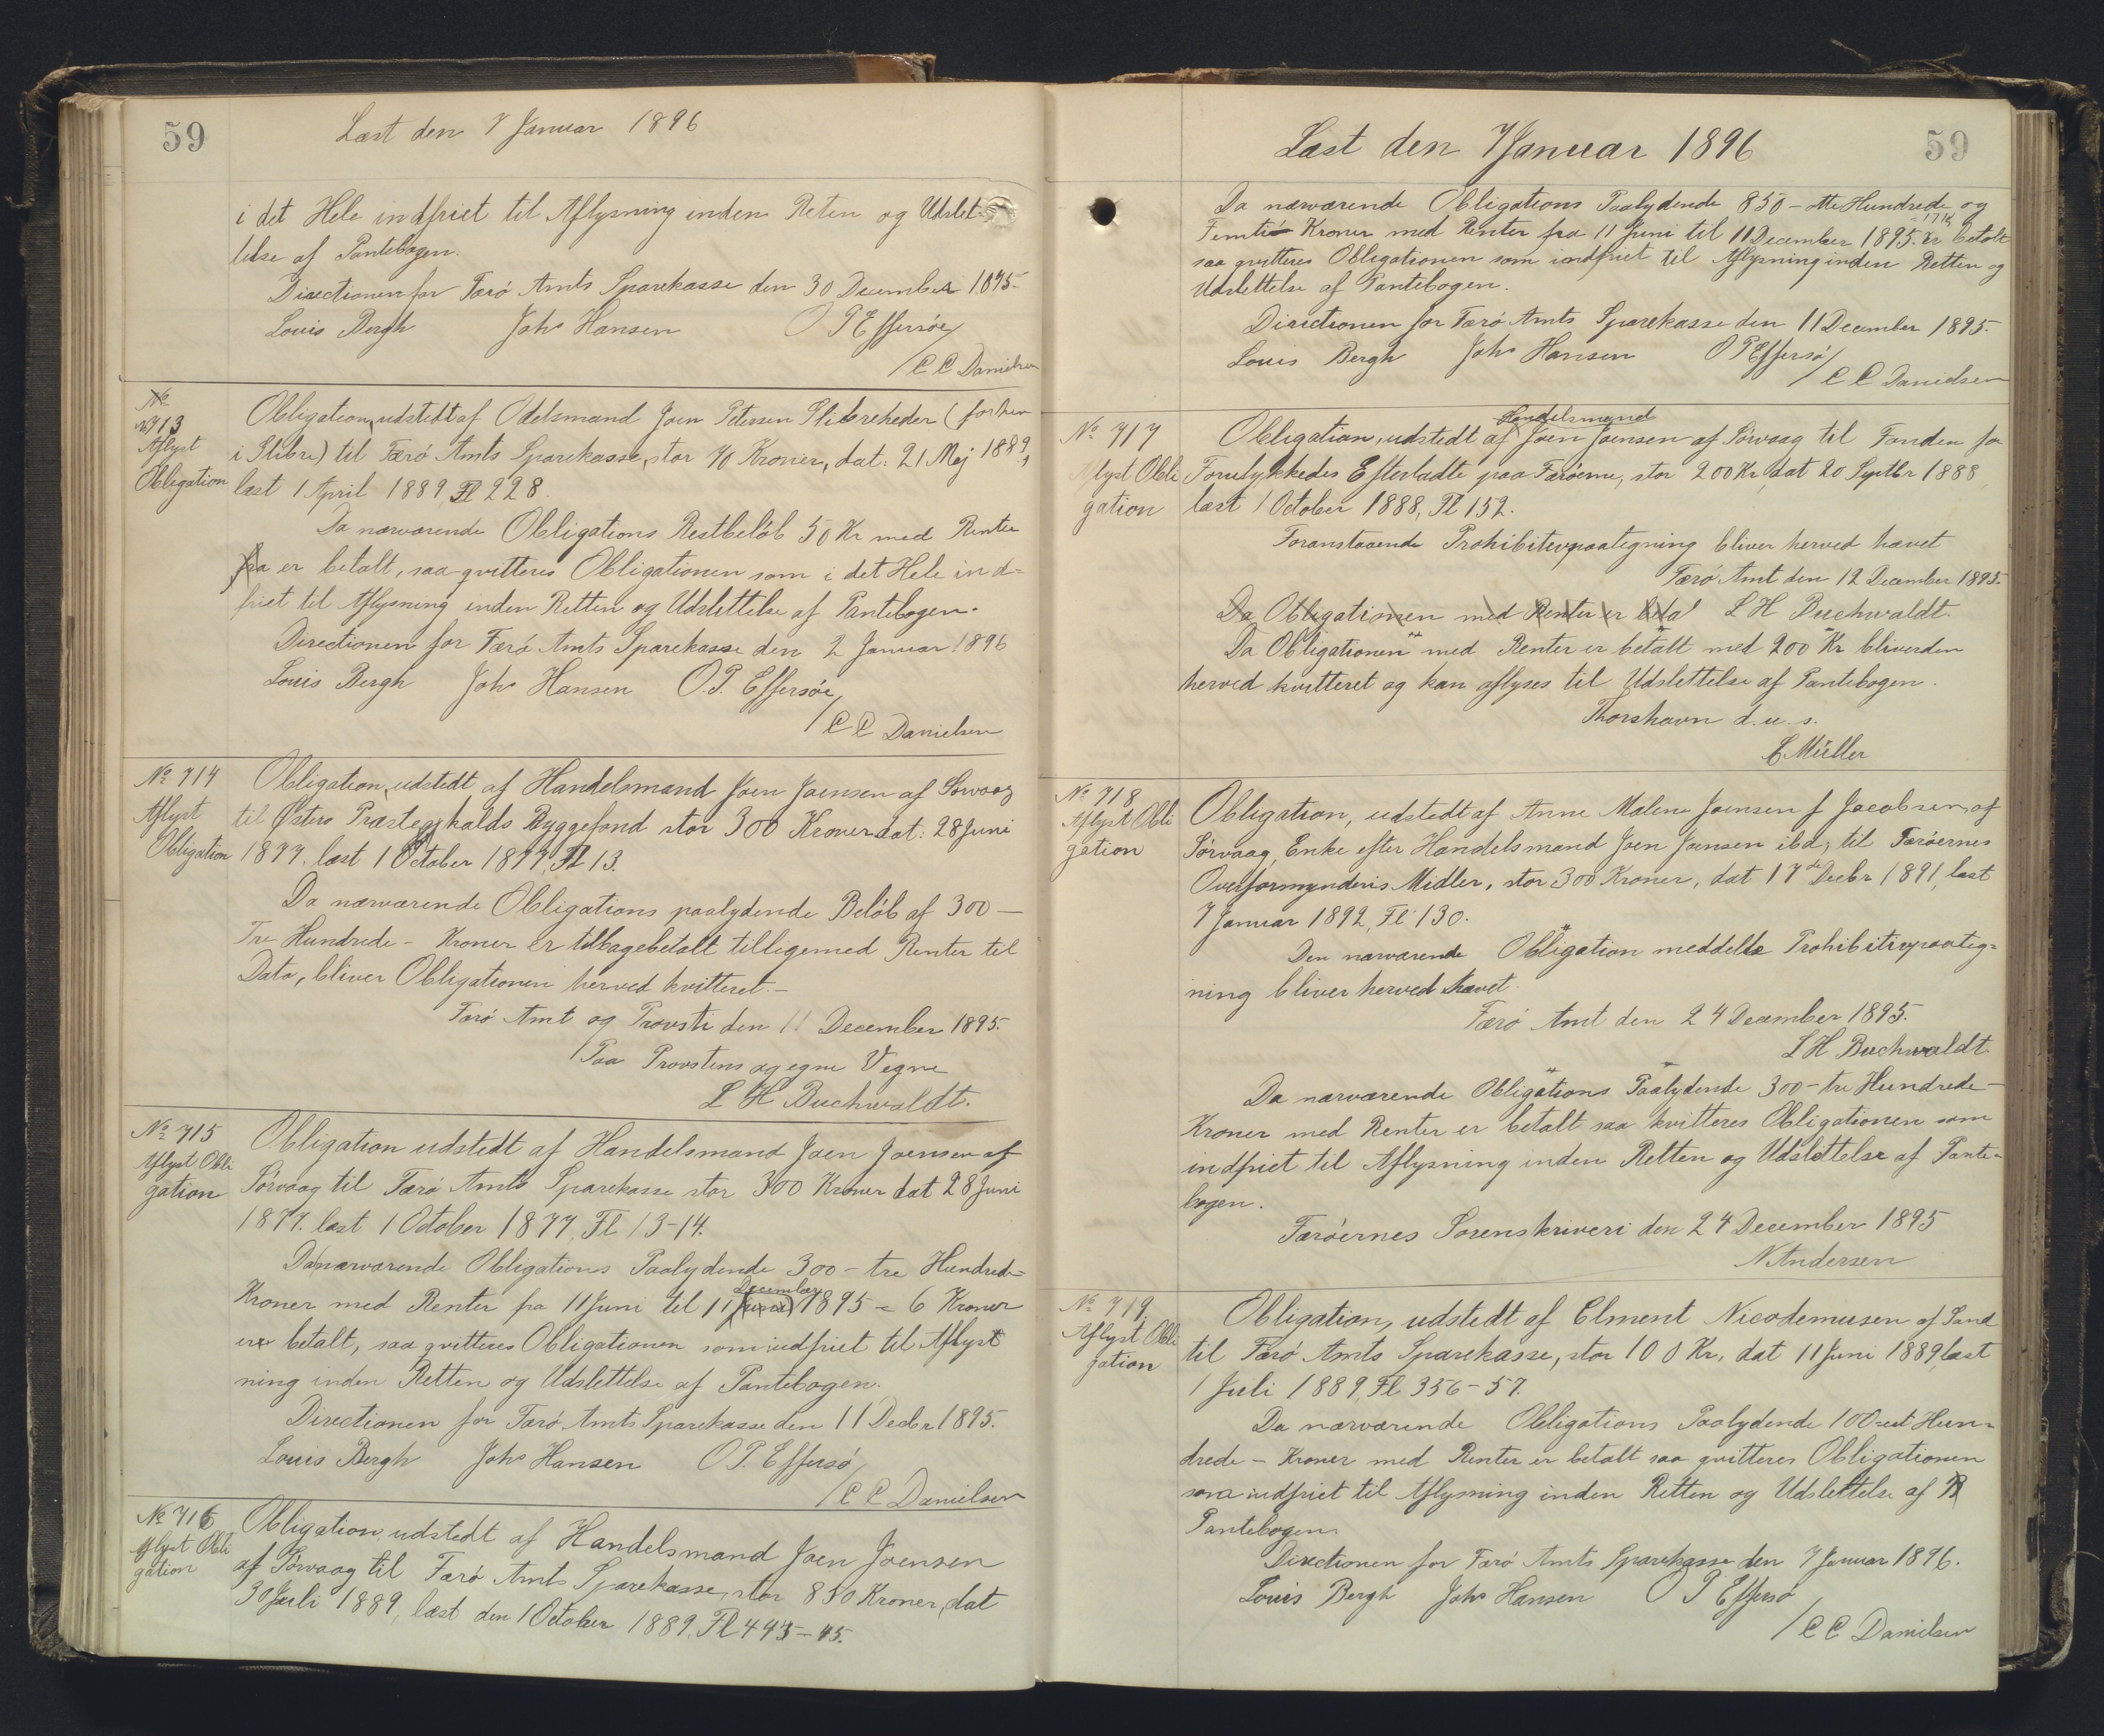 59
Læst den 7 Januar 1896
i det Hele indfriet til Aflysning inden Reten og Udslet-
telse af Pantebogen.
Directionen for Færø Amts Sparekasse den 30 December 1895-
Louis Bergh Johs Hansen O P Effersøe
/C C Danielsen
No
713
Aflyst
Obligation
Obligation, udstedt af Odelsmand Joen Petersen (forhen
i ) til Færø Amts Sparekasse, stor 70 Kroner, dat: 21 Maj 1889,
læst 1 April 1889, Fl 228.
Da nærværende Obligations Restbeløb 50 Kr med Renter
fra er betalt, saa qvitteres Obligationen som i det Hele ind-
friet til Aflysning inden Retten og Udslettelse af Pantebogen.
Directionen for Færø Amts Sparekasse den 2 Januar 1896
Louis Bergh Johs Hansen O.P. Effersøe
/C C Danielsen
No 714
Aflyst
Obligation
Obligation, udstedt af Handelsmand Joen Joensen af Sørvaag
til Østerø Præstegjkalds Byggefond stor 300 Kroner dat: 28 Juni
1877. læst 1 October 1877, Fl 13.
Da nærværende Obligations paalydende Beløb af 300 —
Tre Hundrede - Kroner er tilbagebetalt tilligemed Renter til
Dato, bliver Obligationen herved kvitteret.-
Færø Amt og Provsti den 11 December 1895.
Paa Provstens og egne Vegne
L H Buchwaldt.
No 715
Aflyst Obli
gation
Obligation udstedt af Handelsmand Joen Joensen af
Sørvaag til Færø Amts Sparekasse stor 300 Kroner dat 28 Juni
1877. læst 1 October 1877, Fl 13-14.
Da nærværende Obligations Paalydende 300 - tre Hundrede-
December
Kroner med Renter fra 11 Juni til 11 (Juni) 1895 = 6 Kroner
er betalt, saa qvitteres Obligationen som indfriet til Aflys
ning inden Retten og Udslettelse af Pantebogen.
Directionen for Færø Amts Sparekasse den 11 Decbr 1895.
Louis Bergh Johs Hansen O P. Effersø
/C C Danielsen
No 716
Aflyst Obli
gation
Obligation, udstedt af Handelsmand Joen Joensen
af Sørvaag til Færø Amts Sparekasse, stor 850 Kroner, dat
30 Juli 1889, læst den 1 October 1889. Fl 443-45.
Læst den 7 Januar 1896
59
Da nærværende Obligations Paalydende 850 - otte Hundrede og
= 17 Kr
Femti - Kroner med Renter fra 11 Juni til 11 December 1895. er betalt
saa qvitteres Obligationen som indfriet til Aflysning inden Retten og
Udslettelse af Pantebogen.
Directionen for Færø Amts Sparekasse den 11 December 1895.
Louis Bergh Johs Hansen O P Effersø
/C C Danielsen
No 717
Aflyst Obli
gation
Handelsmand
Obligation, udstedt af Joen Joensen af Sørvaag til Fonden for
Forulykkedes Efterladte paa Færøerne, stor 200 Kr, dat 20 Septbr 1888,
læst 1 October 1888, Fl 152.
Foranstaaende Prohibitivpaategning bliver herved hævet
Færø Amt den 12 December 1895.
Da Obligationen med Renter er betal L H Buchwaldt.
Da Obligationen med Renter er betalt med 200 Kr bliver den
herved kvitteret og kan aflyses til Udslettelse af Pantebogen.
Thorshavn d. u. s.
E Müller
No 718
Aflyst Obli
gation
Obligation, udstedt af Anne Malene Joensen f Jacobsen, af
Sørvaag, Enke efter Handelsmand Joen Joensen ibd, til Færøernes
Overformynderis Midler, stor 300 Kroner, dat 17de Decbr 1891, læst
7 Januar 1892, Fl 130.
Den nærværende Obligation meddelte Prohibitivpaateg=
ning bliver herved hævet.
Færø Amt den 24 December 1895.
L H Buchwaldt
Da nærværende Obligations Paalydende 300 - tre Hundrede -
Kroner med Renter er betalt saa kvitteres Obligationen som
indfriet til Aflysning inden Retten og Udslettelse af Pante-
bogen.
Færøernes Sorenskriveri den 24 December 1895
N Andersen
No 719
Aflyst Obli
gation
Obligation, udstedt af Clment Nicodemusen af Sand
til Færø Amts Sparekasse, stor 100 Kr, dat 11 Juni 1889, læst
1 Juli 1889, Fl 356-57.
Da nærværende Obligations Paalydende 100 - et Hun=
drede - Kroner med Renter er betalt saa qvitteres Obligationen
som indfriet til Aflysning inden Retten og Udslettelse af
Pantebogen.
Directionen for Færø Amts Sparekasse den 7 Januar 1896.
Louis Bergh Johs Hansen O P Effersø
/C C Danielsen